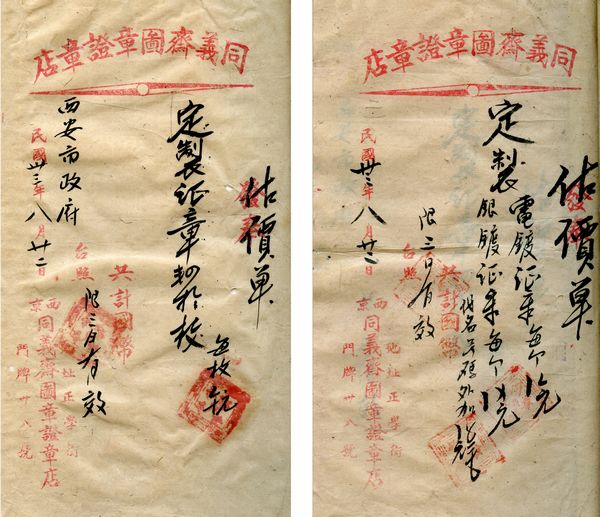 同義齋圖章證章店
估價單
定製证章
每枚
共計國幣
限三日有效
台照
西安市政府
民國卅三年八月廿二日
西京同義齋圖章證章店
地址正學街
門牌卅八號
同義齋圖章證章店
估價單
定製電鍍证章每个
銀鍍证章每个
共計國幣
限三日有效
台照
民國卅三年八月廿二日
西京同義齋圖章證章店
地址正學街
門牌卅八號